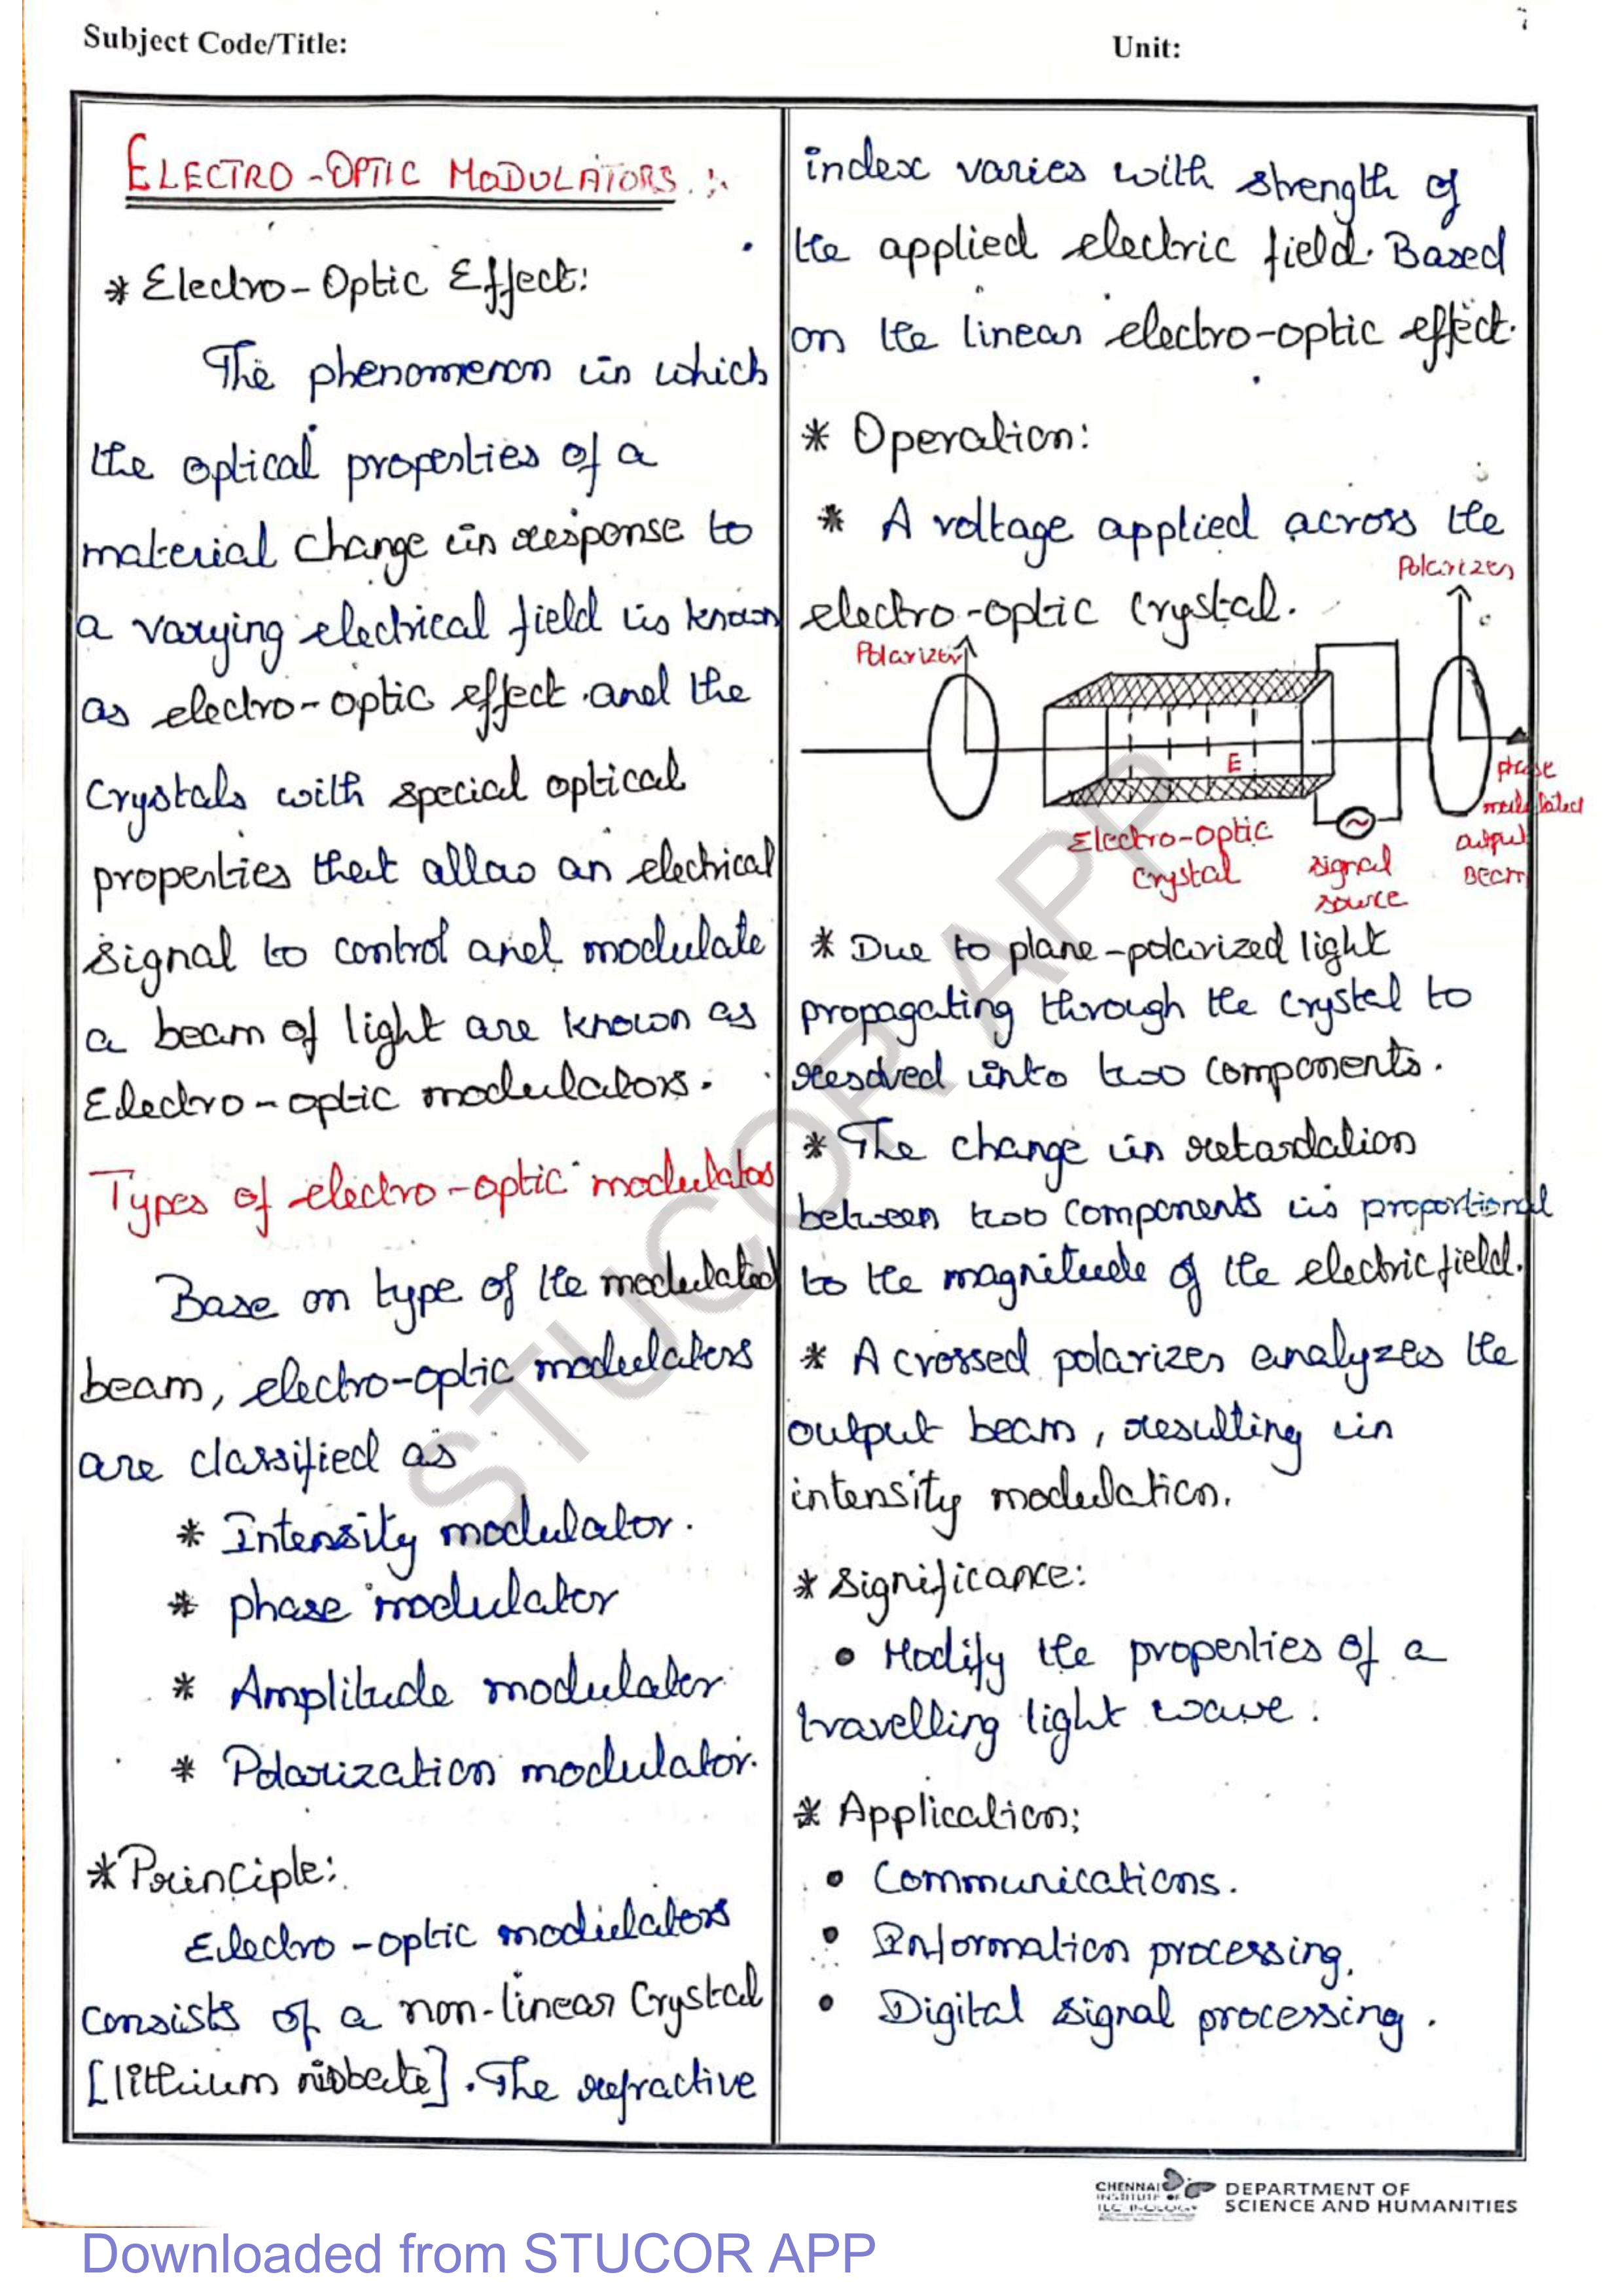 Subject Code/Title:
Unit:
ELECTRO-OPTIC MODULATORS :
* Electro-Optic Effect:
The phenomenon in which
the optical properties of a
material change in response to
a varying electrical field is known
as electro-optic effect and the
Crystals with special optical
properties that allow an electrical
signal to control and modulate
a beam of light are known as
Electro-optic modulators.
Types of electro-optic modulators
Base on type of the modulated
beam, electro-optic modulators
are classified as
* Intensity modulator.
* phase modulator
* Amplitude modulator
* Polarization modulator.
* Principle:
Electro-optic modulators
consists of a non-linear Crystal
[lithium niobate]. The refractive
index varies with strength of
the applied electric field. Based
on the linear electro-optic effect.
* Operation:
* A voltage applied across the
electro-optic Crystal.
Polarizer
Polarizer
E
Electro-optic
Crystal
signal
source
phase
modulated
output
Beam
* Due to plane-polarized light
propagating through the crystal to
resolved into two components.
* The change in retardation
between two components is proportional
to the magnitude of the electric field.
* A crossed polarizer analyzes the
output beam, resulting in
intensity modulation.
* Significance:
• Modify the properties of a
travelling light wave.
* Application:
• Communications.
• Information processing.
• Digital signal processing.
STUCOR APP
CHENNAI
INSTITUTE OF
TECHNOLOGY
DEPARTMENT OF
SCIENCE AND HUMANITIES
Downloaded from STUCOR APP